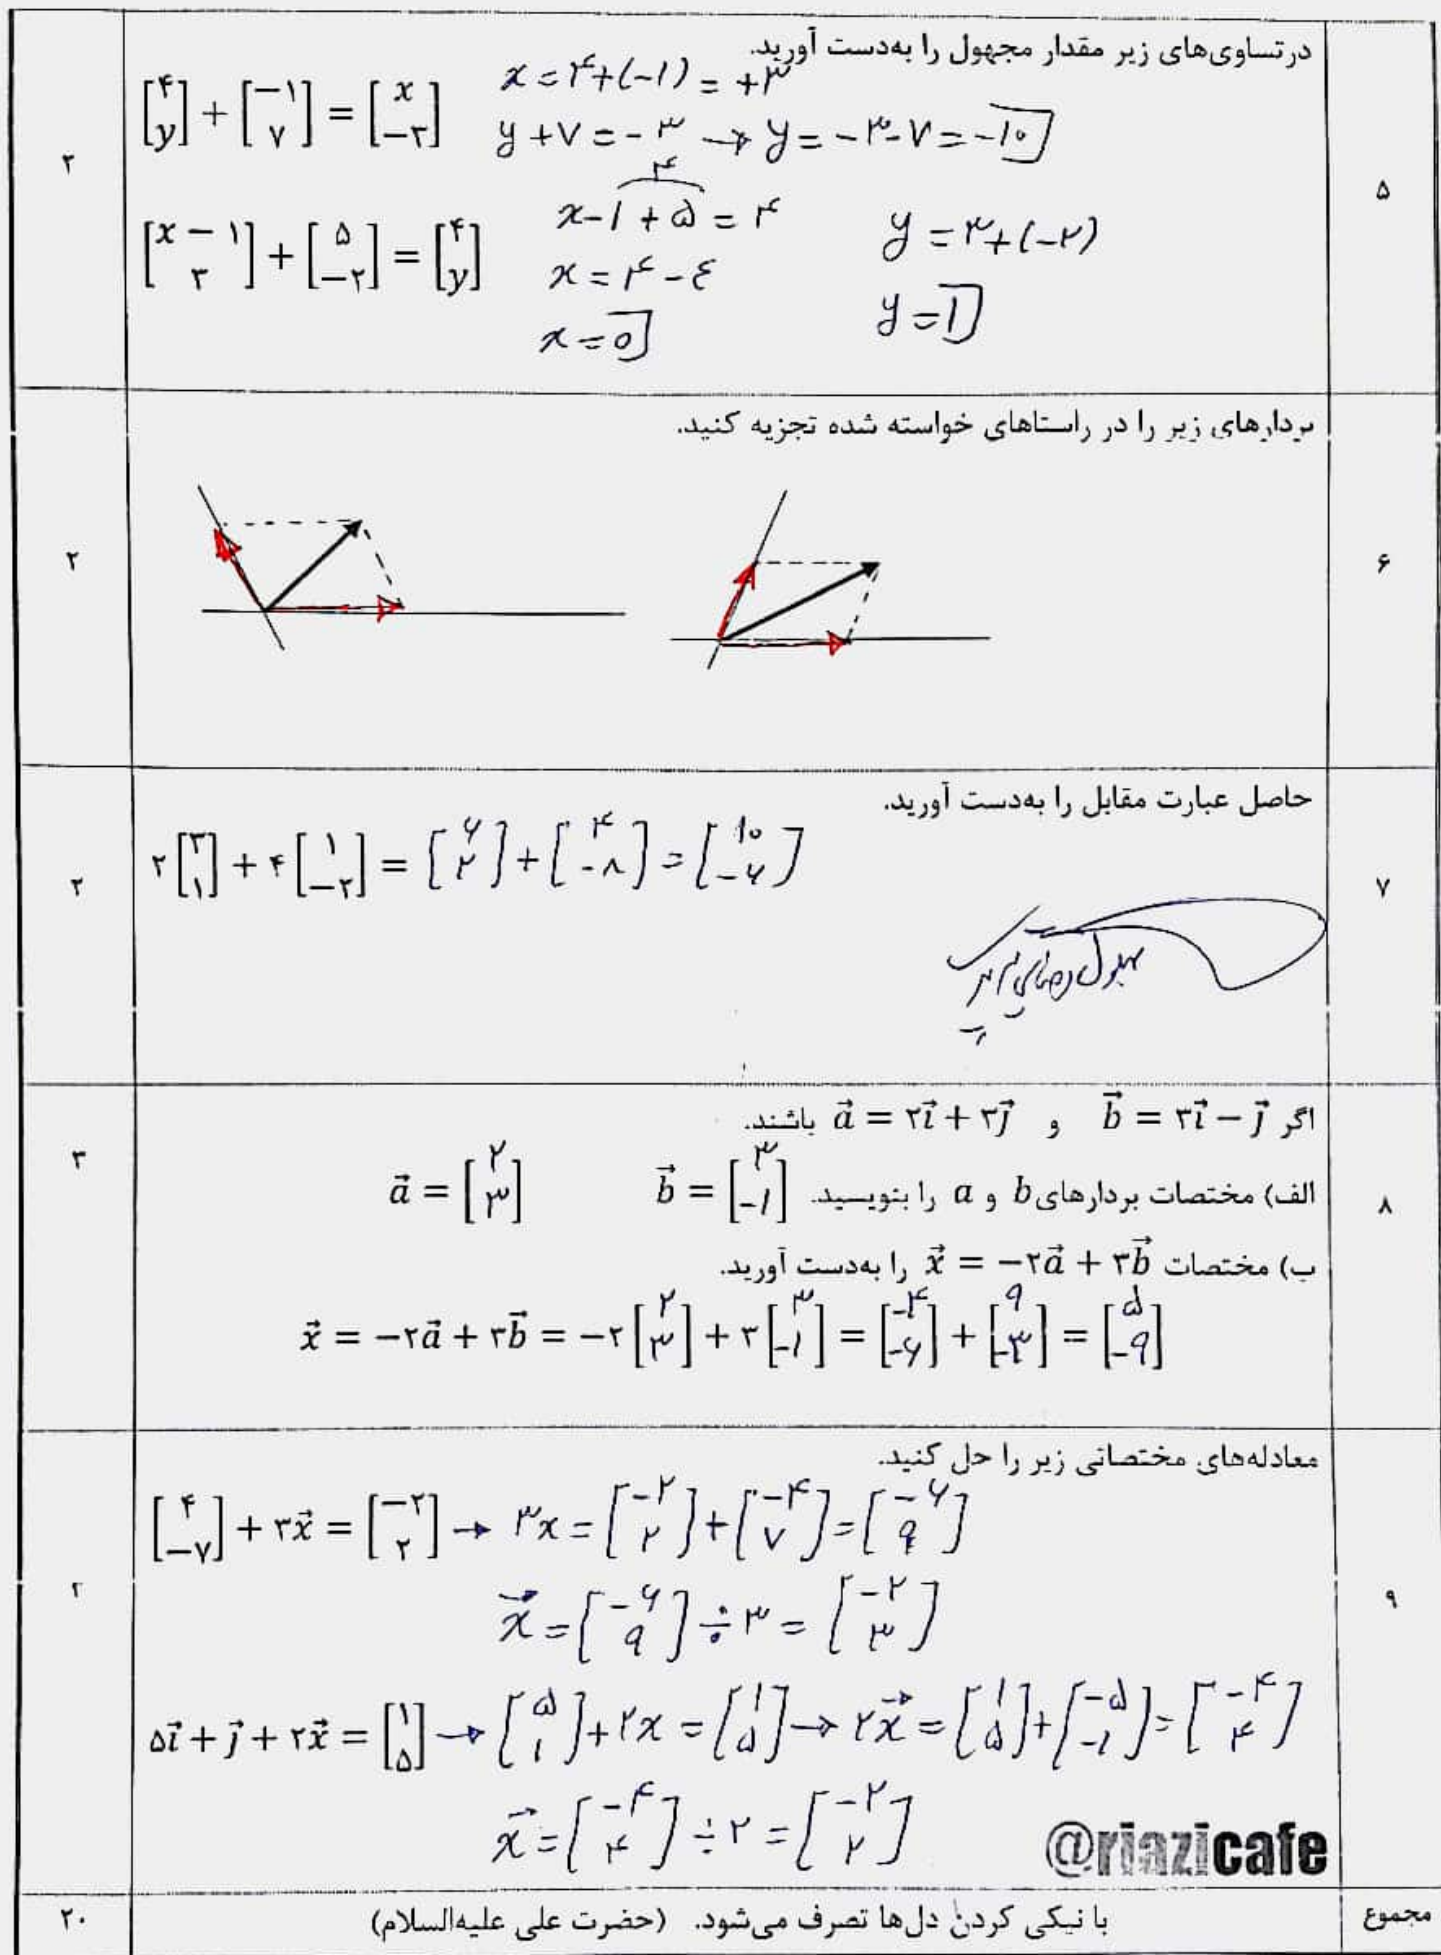 ۵
درتساوی‌های زیر مقدار مجهول را به‌دست آورید.
۲
[۴ y] + [−۱ ۷] = [x −۳]
x = ۴+(-۱) = +۳
y + ۷ = -۳ → y = -۳-۷ = -۱۰
[x − ۱ ۳] + [۵ −۲] = [۴ y]
۴
x-۱ + ۵ = ۴
x = ۴ - ٤
x = ۰
y = ۳+(-۲)
y = ۱
۶
بردارهای زیر را در راستاهای خواسته شده تجزیه کنید.
۲
۷
حاصل عبارت مقابل را به‌دست آورید.
۲
۲[۳ ۱] + ۴[۱ −۲] = [۶ ۲] + [۴ -۸] = [۱۰ -۶]
۸
اگر b⃗ = ۳i⃗ − j⃗ و a⃗ = ۲i⃗ + ۳j⃗ باشند.
۳
الف) مختصات بردارهای b و a را بنویسید. b⃗ = [۳ -۱] a⃗ = [۲ ۳]
ب) مختصات x⃗ = −۲a⃗ + ۳b⃗ را به‌دست آورید.
x⃗ = −۲a⃗ + ۳b⃗ = −۲[۲ ۳] + ۳[۳ -۱] = [-۴ -۶] + [۹ -۳] = [۵ -۹]
۹
معادله‌های مختصاتی زیر را حل کنید.
۲
[۴ −۷] + ۳x⃗ = [−۲ ۲] → ۳x = [-۲ ۲] + [-۴ ۷] = [-۶ ۹]
x⃗ = [-۶ ۹] ÷ ۳ = [-۲ ۳]
۵i⃗ + j⃗ + ۲x⃗ = [۱ ۵] → [۵ ۱] + ۲x = [۱ ۵] → ۲x⃗ = [۱ ۵] + [-۵ -۱] = [-۴ ۴]
x⃗ = [-۴ ۴] ÷ ۲ = [-۲ ۲]
@riazicafe
مجموع
با نیکی کردن دل‌ها تصرف می‌شود. (حضرت علی علیه‌السلام)
۲۰